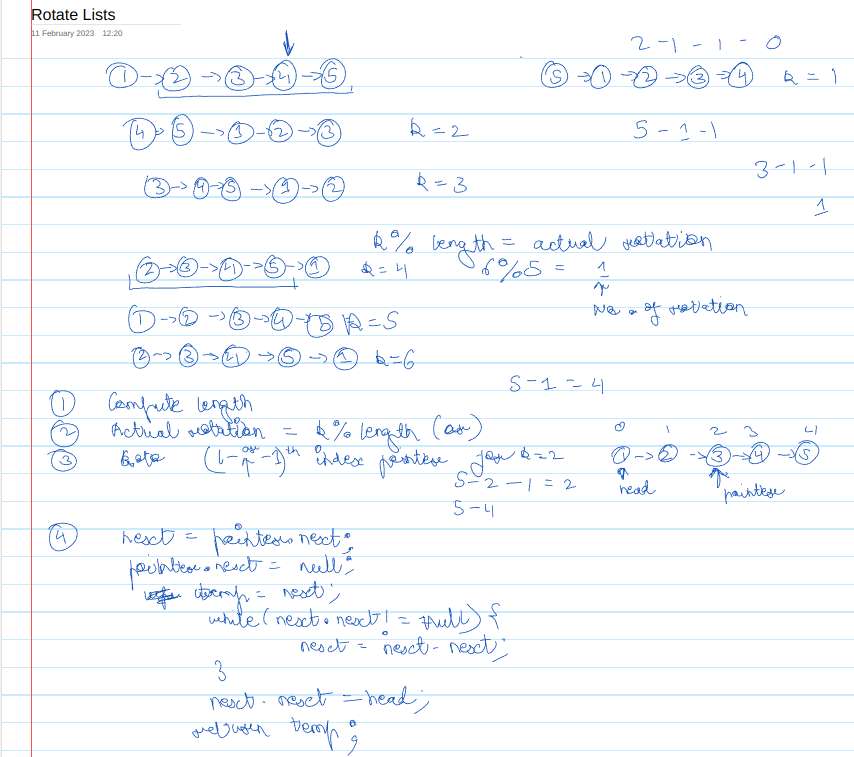 Rotate Lists
11 February 2023 12:20
2 - 1 - 1 - 0
1 -> 2 -> 3 -> 4 -> 5
5 -> 1 -> 2 -> 3 -> 4 k = 1
4 -> 5 -> 1 -> 2 -> 3 k = 2
5 - 1 - 1
3 - 1 - 1
1
3 -> 4 -> 5 -> 1 -> 2 k = 3
k % length = actual rotation
2 -> 3 -> 4 -> 5 -> 1 k = 4
6 % 5 = 1
↑
No. of rotation
1 -> 2 -> 3 -> 4 -> 5 k = 5
2 -> 3 -> 4 -> 5 -> 1 k = 6
5 - 1 = 4
① Compute length
② Actual rotation = k % length (ar)
③ (l - ar - 1)th index pointer for k = 2
5 - 2 - 1 = 2
5 - 4
0 1 2 3 4
1 -> 2 -> 3 -> 4 -> 5
head pointer
④ next = pointer.next;
pointer.next = null;
temp = next;
while (next.next != null) {
next = next.next;
}
next.next = head;
return temp;